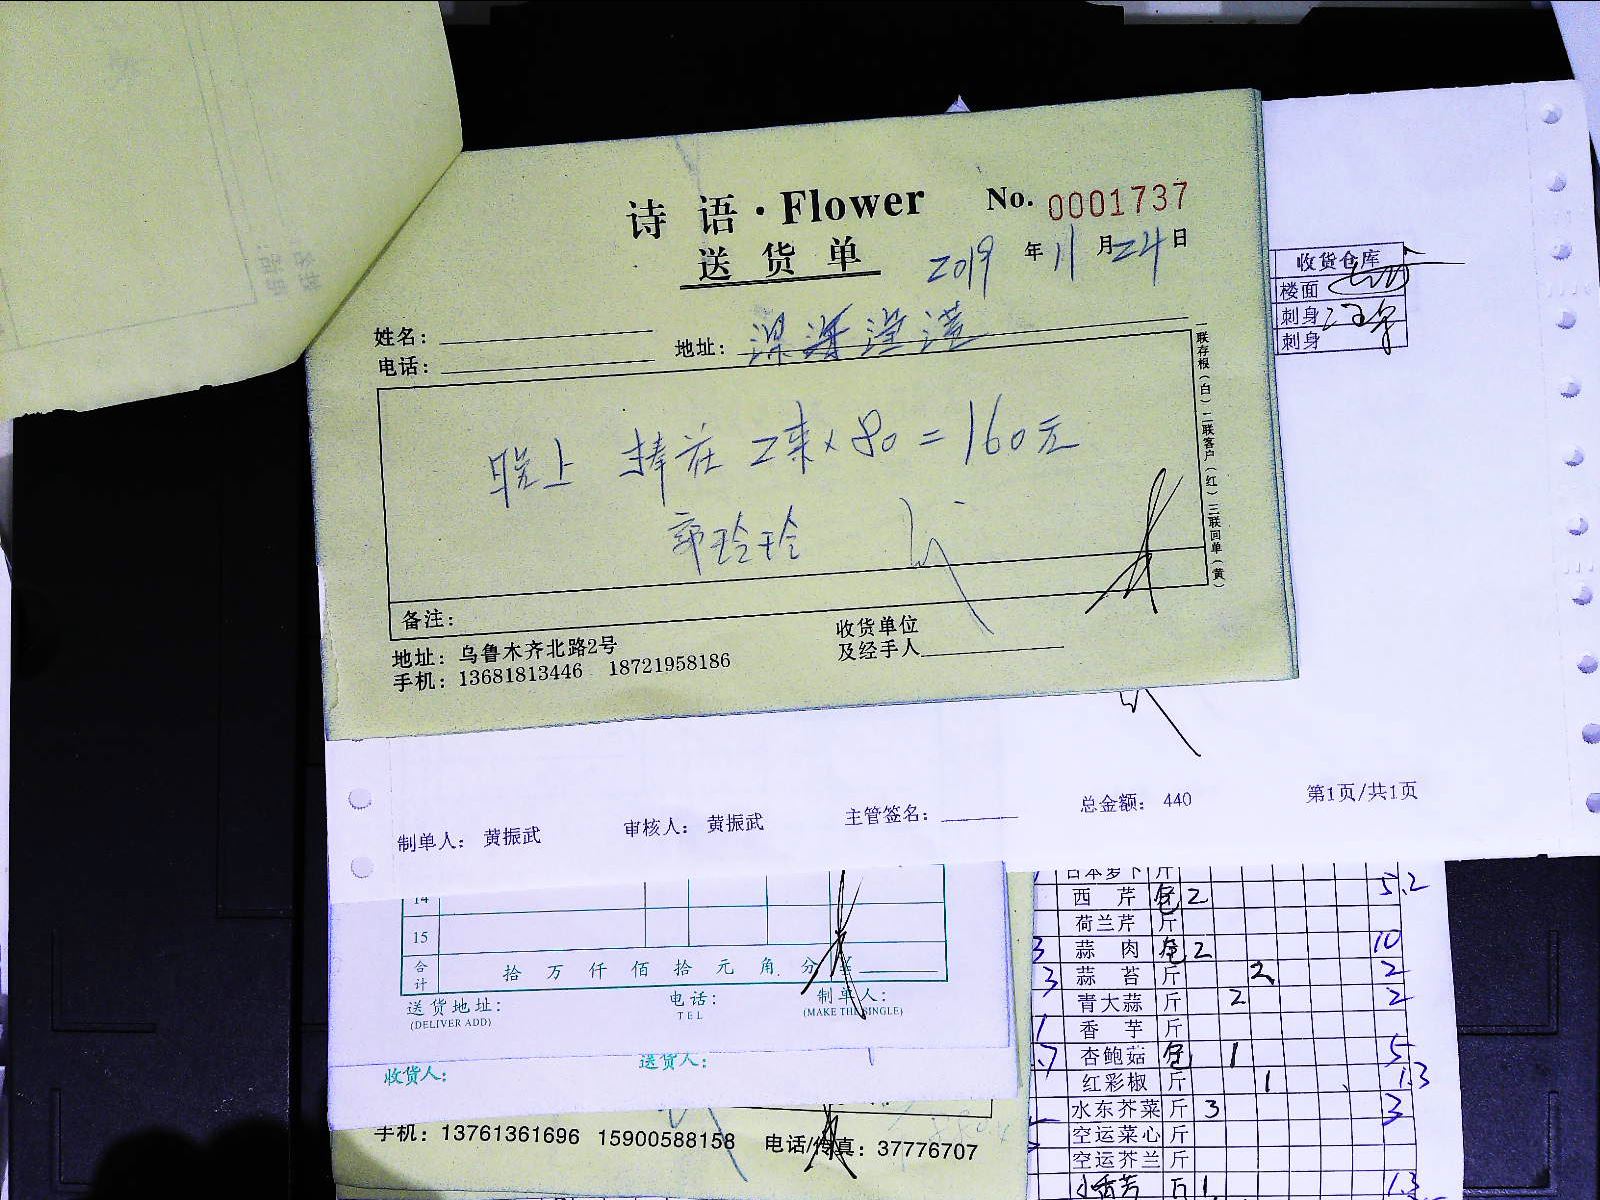 诗语·Flower No. 0001737
送货单 2019年11月24日
姓名：
电话：
地址：
晚上 捧花 2束×80=160元
郭玲玲
备注：
地址：乌鲁木齐北路2号
手机：13681813446 18721958186
收货单位
及经手人
联存根（白）二联客户（红）三联回单（黄）
收货仓库
楼面
刺身
刺身
制单人：黄振武 审核人：黄振武 主管签名： 总金额：440 第1页/共1页
14
15
合计 拾万仟佰拾元角分 ¥
送货地址： 电话： 制单人：
(DELIVER ADD) TEL (MAKE THE SINGLE)
收货人： 送货人：
手机：13761361696 15900588158 电话/传真：37776707
日本萝卜 斤 5.2
西芹 包 2
荷兰芹 斤
3 蒜肉 包 2 10
3 蒜苔 斤 2 2
青大蒜 斤 2 2
1 香芋 斤
.7 杏鲍菇 包 1 5
红彩椒 斤 1 1.3
水东芥菜 斤 3 3
空运菜心 斤
空运芥兰 斤
1 1.3